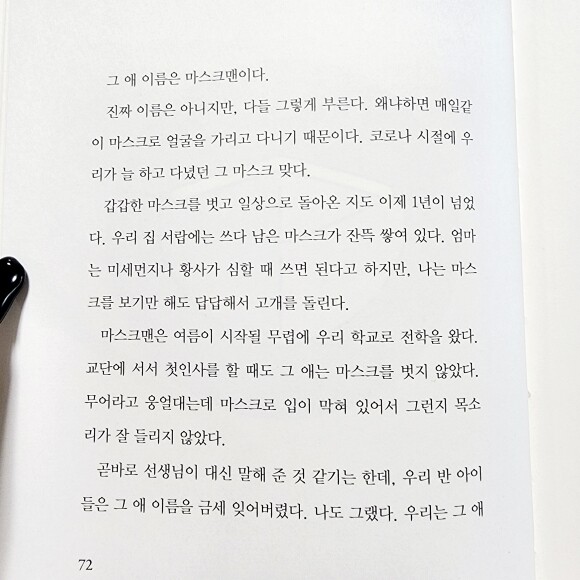 그 애 이름은 마스크맨이다.
진짜 이름은 아니지만, 다들 그렇게 부른다. 왜냐하면 매일같
이 마스크로 얼굴을 가리고 다니기 때문이다. 코로나 시절에 우
리가 늘 하고 다녔던 그 마스크 맞다.
갑갑한 마스크를 벗고 일상으로 돌아온 지도 이제 1년이 넘었
다. 우리 집 서랍에는 쓰다 남은 마스크가 잔뜩 쌓여 있다. 엄마
는 미세먼지나 황사가 심할 때 쓰면 된다고 하지만, 나는 마스
크를 보기만 해도 답답해서 고개를 돌린다.
마스크맨은 여름이 시작될 무렵에 우리 학교로 전학을 왔다.
교단에 서서 첫인사를 할 때도 그 애는 마스크를 벗지 않았다.
무어라고 웅얼대는데 마스크로 입이 막혀 있어서 그런지 목소
리가 잘 들리지 않았다.
곧바로 선생님이 대신 말해 준 것 같기는 한데, 우리 반 아이
들은 그 애 이름을 금세 잊어버렸다. 나도 그랬다. 우리는 그 애
72